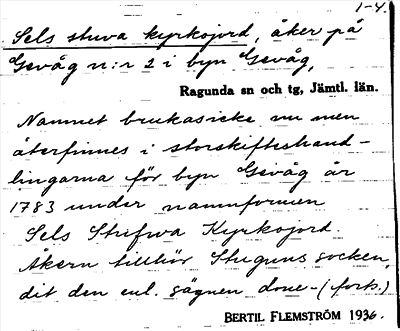 1-4.
Sels stuva kyrkojord, åker på
Gevåg n:r 2 i byn Gevåg,
Ragunda sn och tg, Jämtl. län.
Namnet brukas icke nu men
återfinnes i storskifteshand-
lingarna för byn Gevåg år
1783 under namnformen
Sels Stufwa Kyrkojord.
Åkern tillhör Stuguns socken,
dit den enl. sägnen done-(forts.)
BERTIL FLEMSTRÖM 1936.